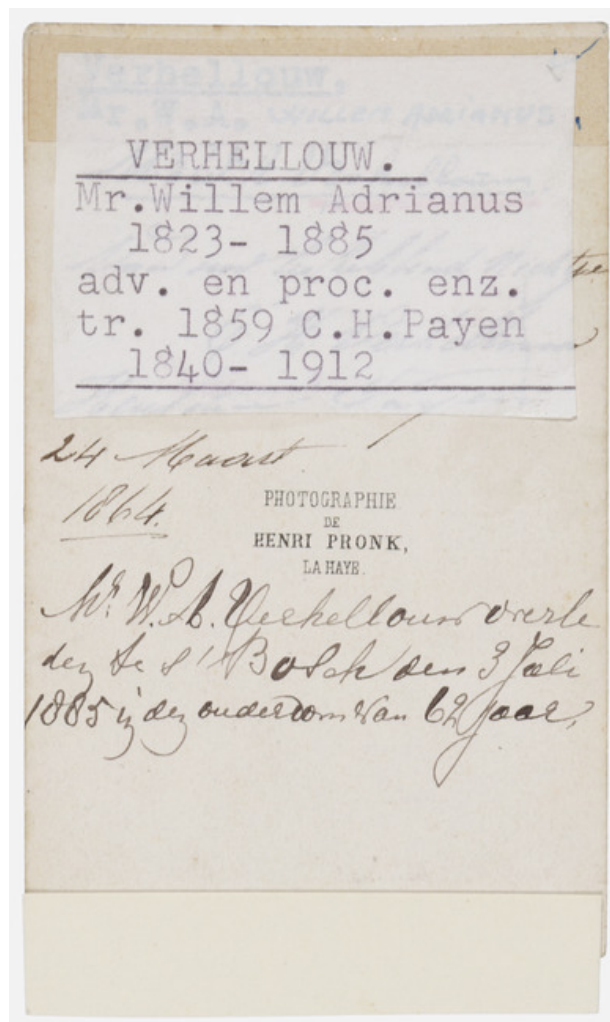 VERHELLOUW.
Mr.Willem Adrianus
1823- 1885
adv. en proc. enz.
tr. 1859 C.H.Payen
1840- 1912
24 Maart
1864.
PHOTOGRAPHIE
DE
HENRI PRONK,
LA HAYE.
Mr. W. A. Verhellouw overle
den te s' Bosch den 3 Juli
1885 in den ouderdom van 62 jaar,